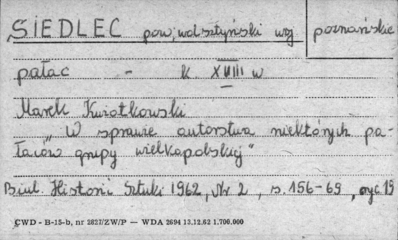 SIEDLEC pow, wolsztyński woj poznańskie
pałac - k XVIII w
Marek Kwotkowski
„W sprawie autorstwa niektórych pa-
łaców grupy wielkopolskiej”
Biul. Historii Sztuki 1962, Nr 2, s. 156-69, ryc. 19
CWD - B-15-b, nr 2827/ZW/P — WDA 2694 13.12.62 1.700.000